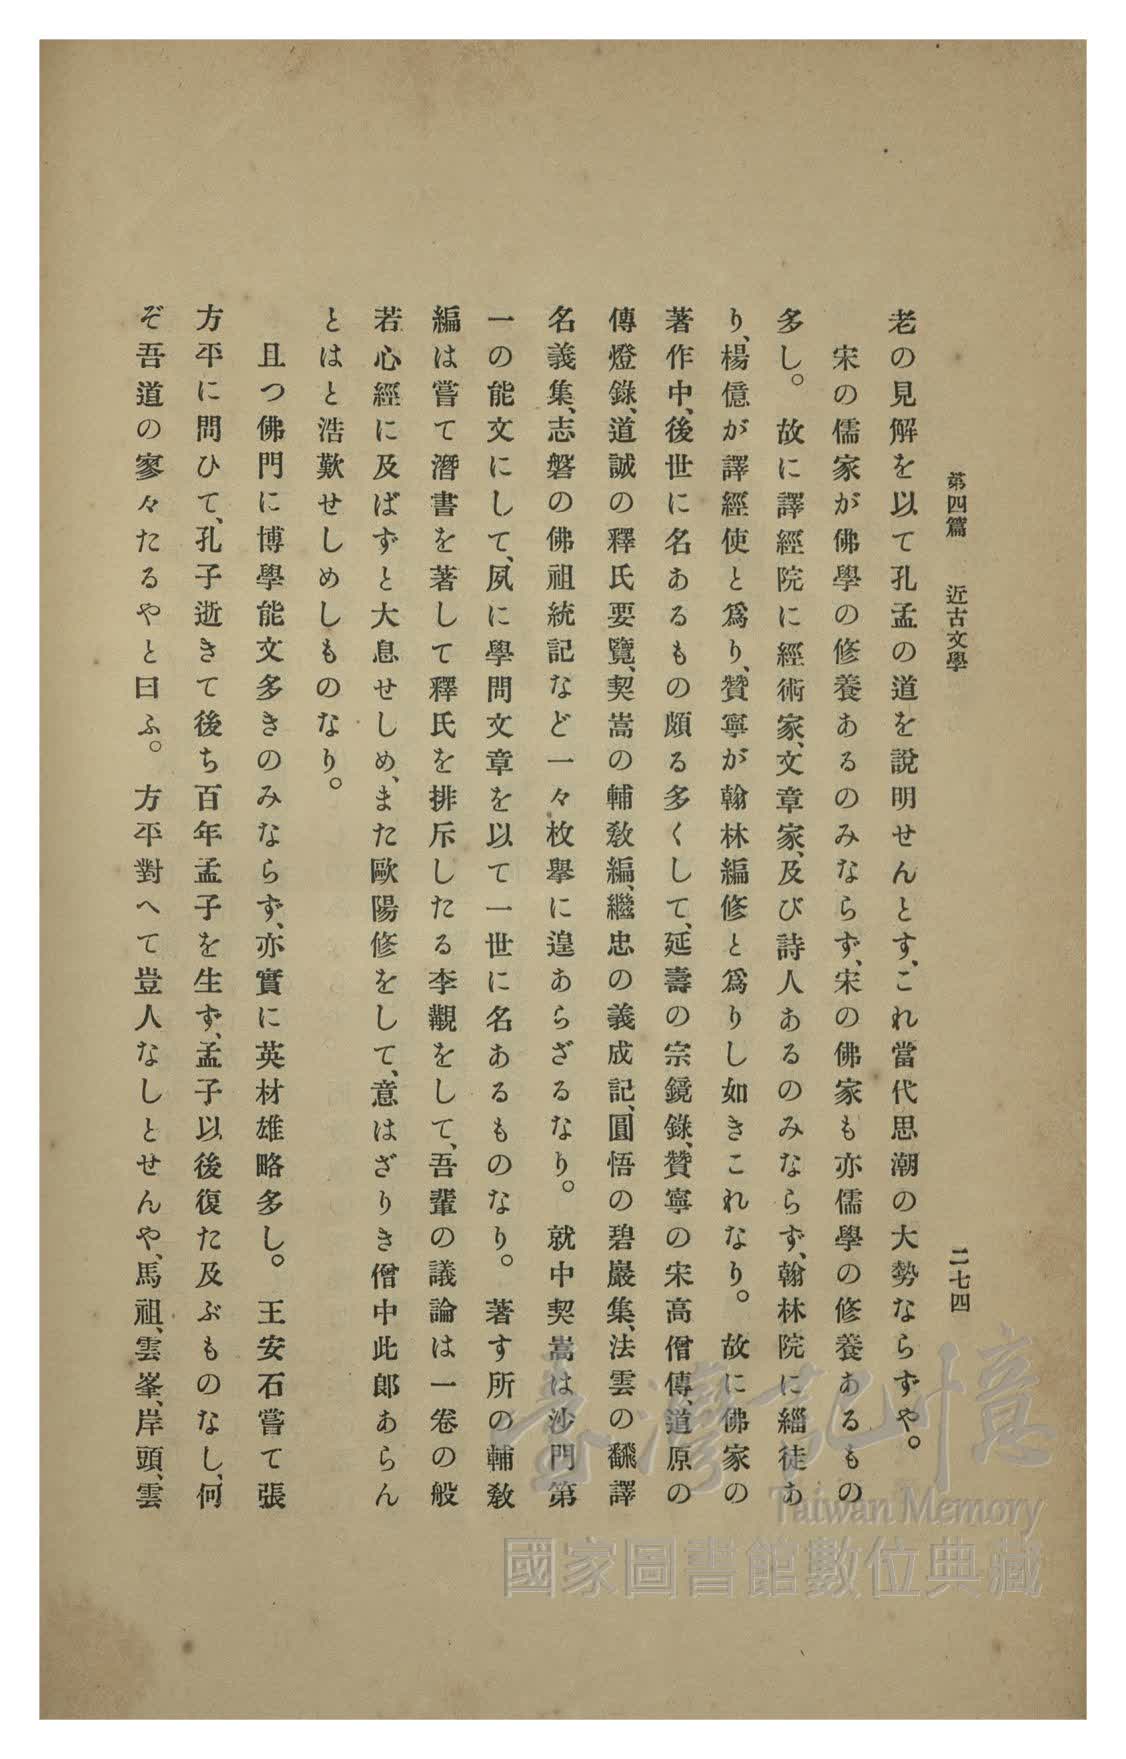 第四篇 近古文學 二七四
老の見解を以て孔孟の道を說明せんとす、これ當代思潮の大勢ならずや。
宋の儒家が佛學の修養あるのみならず、宋の佛家も亦儒學の修養あるもの
多し。故に譯經院に經術家、文章家、及び詩人あるのみならず、翰林院に緇徒あ
り、楊億が譯經使と爲り、贊寧が翰林編修と爲りし如きこれなり。故に佛家の
著作中、後世に名あるもの頗る多くして、延壽の宗鏡錄、贊寧の宋高僧傳、道原の
傳燈錄、道誠の釋氏要覽、契嵩の輔敎編、繼忠の義成記、圓悟の碧巖集、法雲の飜譯
名義集、志磐の佛祖統記など一々枚擧に遑あらざるなり。就中契嵩は沙門第
一の能文にして、夙に學問文章を以て一世に名あるものなり。著す所の輔敎
編は嘗て潛書を著して釋氏を排斥したる李覯をして、吾輩の議論は一卷の般
若心經に及ばずと大息せしめ、また歐陽修をして、意はざりき僧中此郞あらん
とはと浩歎せしめしものなり。
且つ佛門に博學能文多きのみならず、亦實に英材雄略多し。王安石嘗て張
方平に問ひて、孔子逝きて後ち百年孟子を生ず、孟子以後復た及ぶものなし、何
ぞ吾道の寥々たるやと曰ふ。方平對へて豈人なしとせんや、馬祖、雲峯、岸頭、雲
臺灣記憶
Taiwan Memory
國家圖書館數位典藏